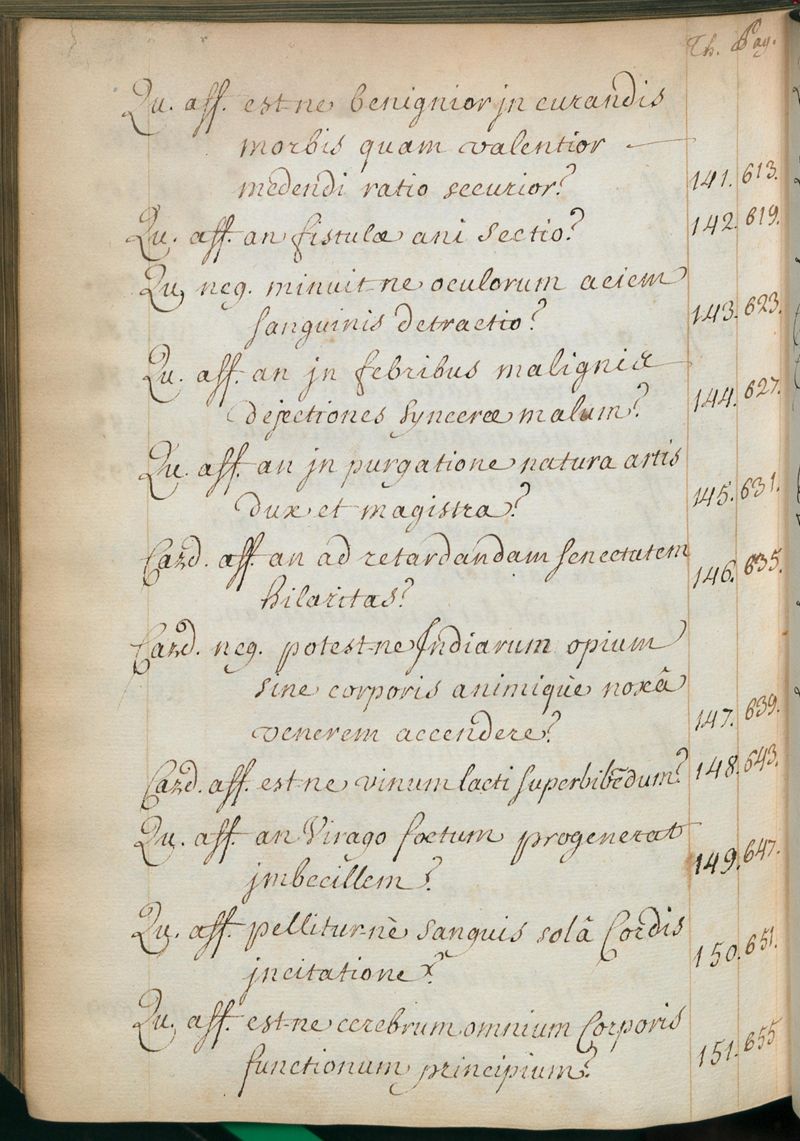 Th. Pag.
Qu. aff. est-ne benignior jn curandis
morbis quam valentior
medendi ratio securior? 141. 613.
Qu. aff. an fistulæ ani sectio? 142. 619.
Qu. neg. minuit-ne oculorum aciem
sanguinis detractio? 143. 623.
Qu. aff. an jn febribus malignis
dejectiones synceræ malum? 144. 627.
Qu. aff. an jn purgatione natura artis
dux et magistra? 145. 631.
Card. aff. an ad retardandam senectutem
hilaritas? 146. 635.
Card. neg. potest-ne Jndiarum opium
sine corporis animiquè noxâ
venerem accendere? 147. 639.
Card. aff. est-ne vinum lacti superbibēdum? 148. 643.
Qu. aff. an Virago fœtum progenerat
jmbecillem? 149. 647.
Qu. aff. pellitur-nè sanguis solâ Cordis
jncitatione? 150. 651.
Qu. aff. est-ne cerebrum omnium Corporis
functionum principium? 151. 655